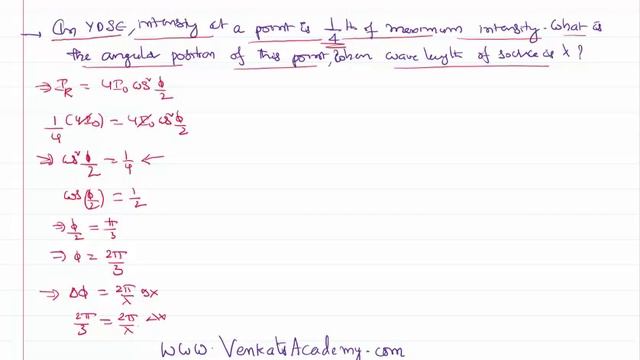 → In YDSE, intensity at a point is 1/4 th of maximum intensity. What is
the angular position of this point, when wave length of source is λ?
⇒ I_R = 4I₀ cos² ϕ/2
1/4 (4I₀) = 4I₀ cos² ϕ/2
⇒ cos² ϕ/2 = 1/4 ←
cos(ϕ/2) = 1/2
⇒ ϕ/2 = π/3
⇒ ϕ = 2π/3
⇒ Δϕ = 2π/λ Δx
2π/3 = 2π/λ Δx
www.VenkatsAcademy.com